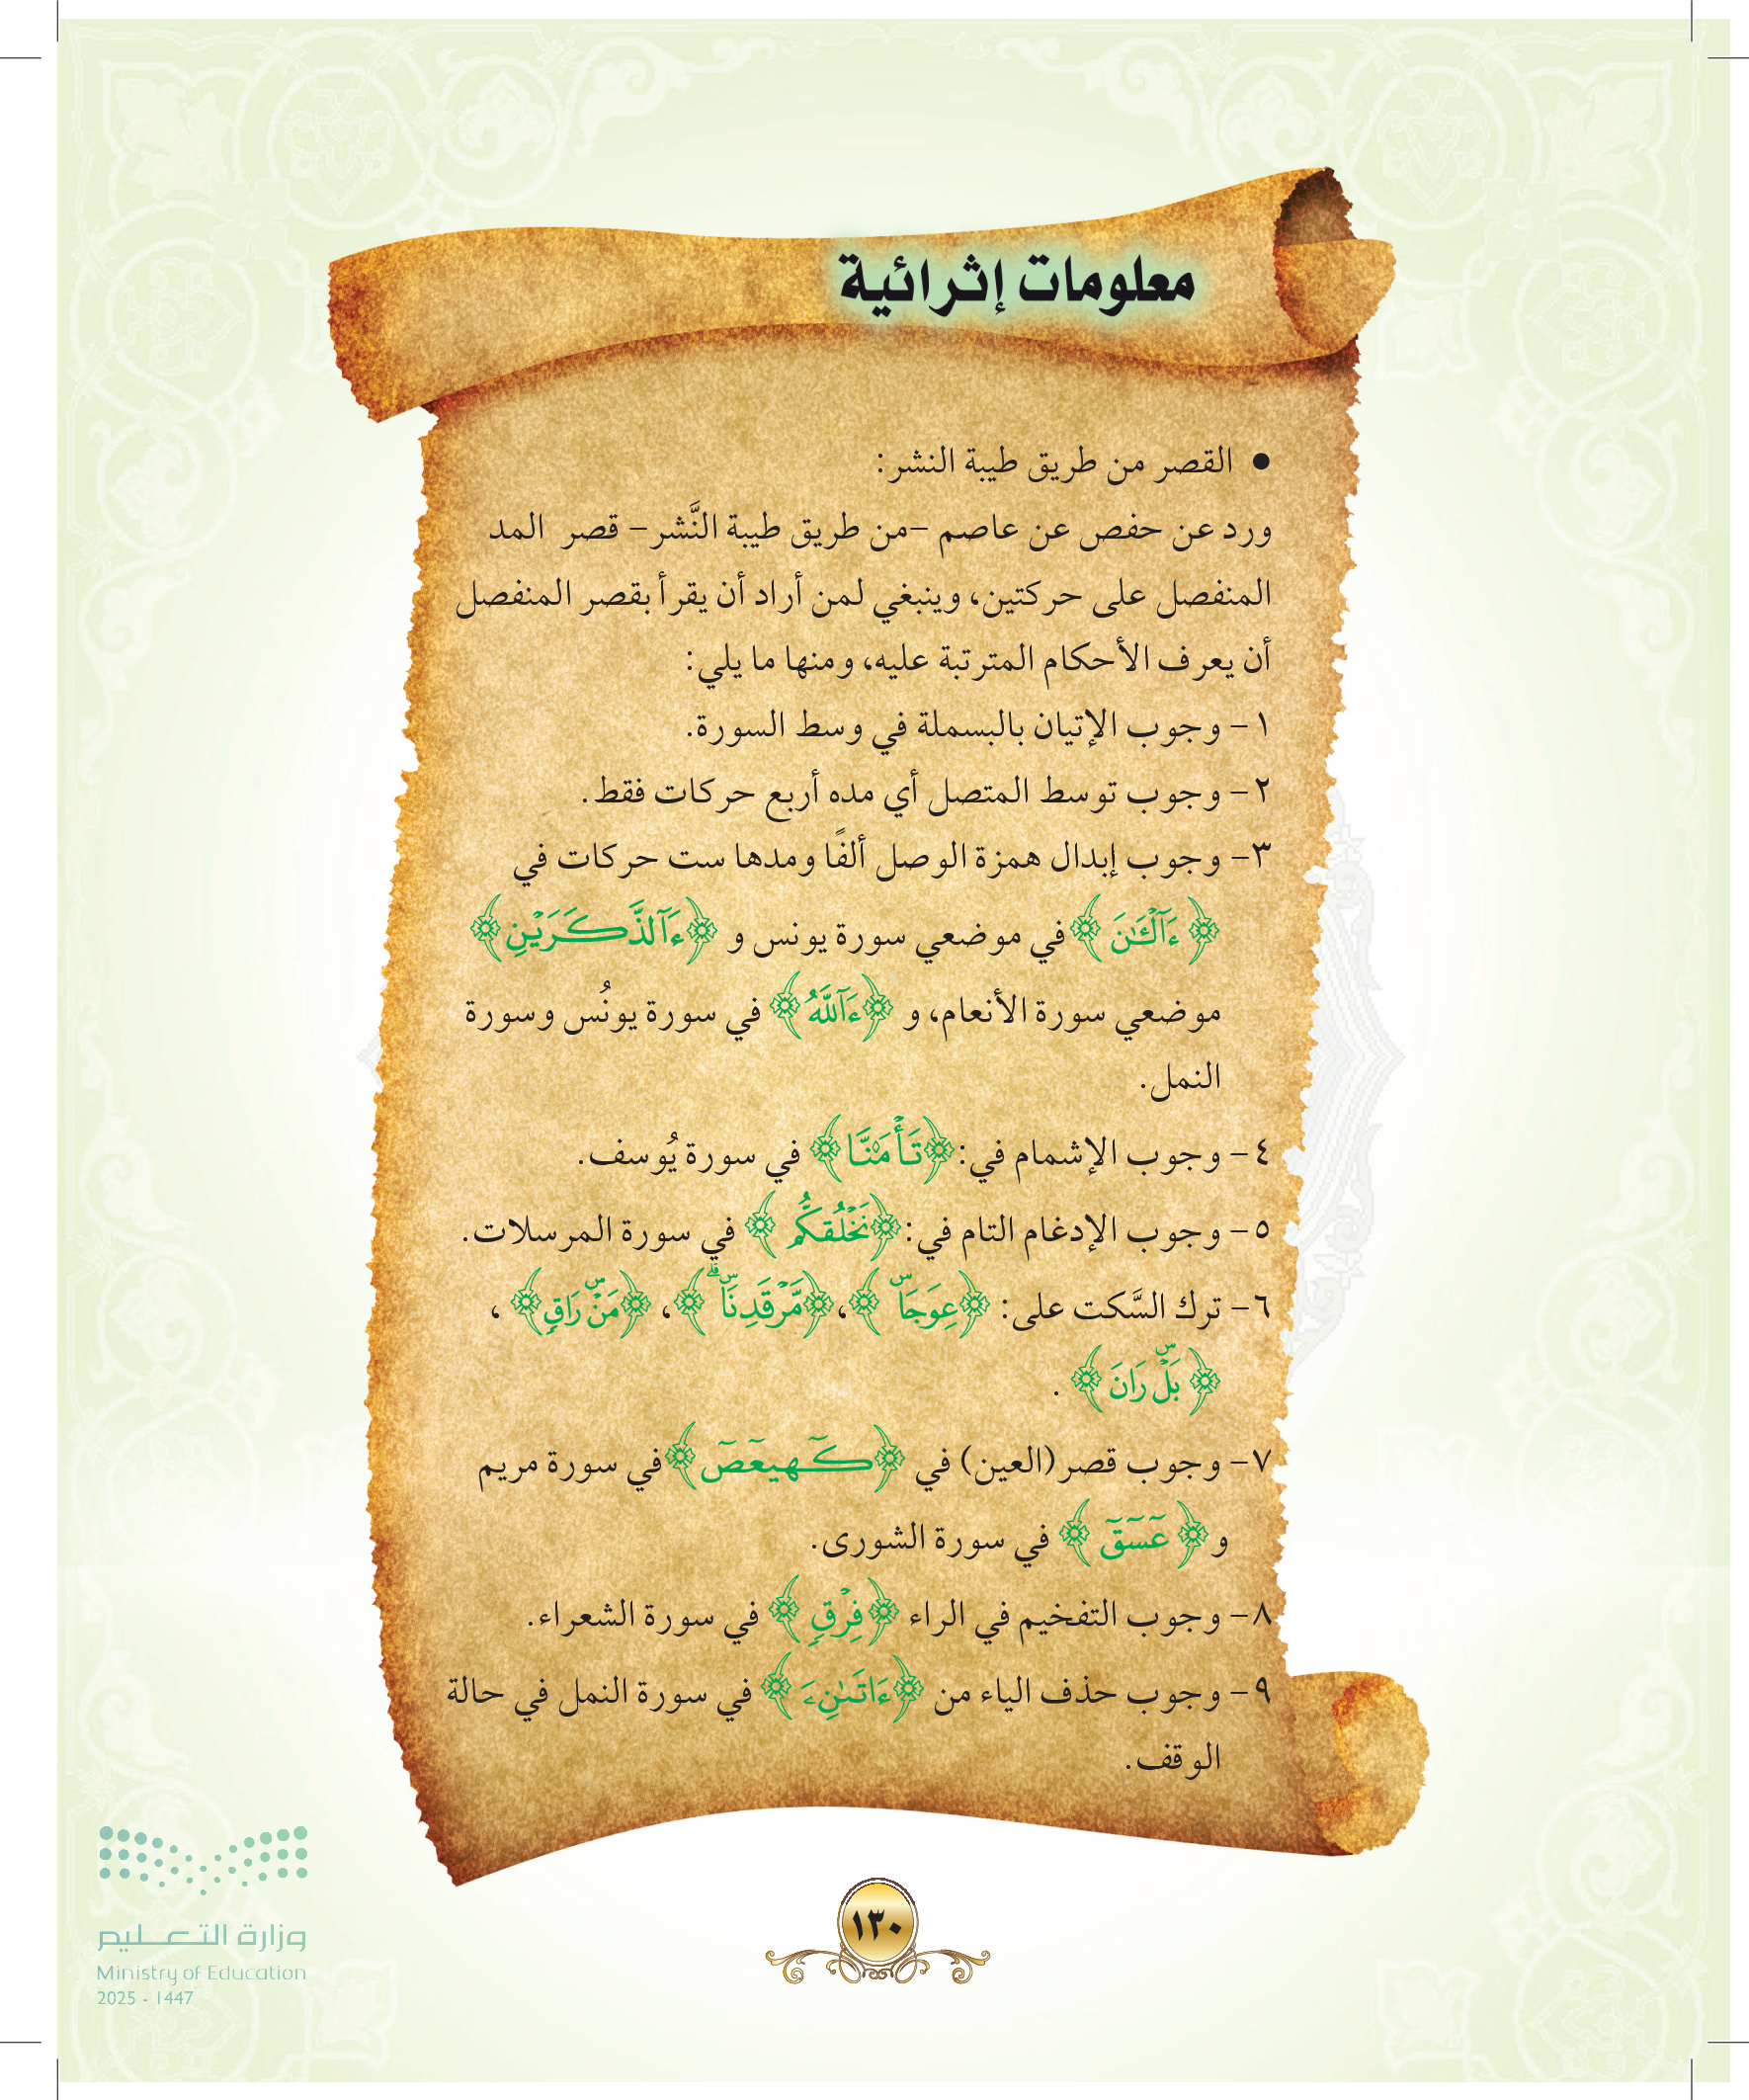 معلومات إثرائية
• القصر من طريق طيبة النشر:
ورد عن حفص عن عاصم –من طريق طيبة النَّشر– قصر المد
المنفصل على حركتين، وينبغي لمن أراد أن يقرأ بقصر المنفصل
أن يعرف الأحكام المترتبة عليه، ومنها ما يلي:
١– وجوب الإتيان بالبسملة في وسط السورة.
٢– وجوب توسط المتصل أي مده أربع حركات فقط.
٣– وجوب إبدال همزة الوصل ألفًا ومدها ست حركات في
﴿ءَآلۡـَٰٔنَ﴾ في موضعي سورة يونس و ﴿ءَآلذَّكَرَيۡنِ﴾
موضعي سورة الأنعام، و ﴿ءَآللَّهُ﴾ في سورة يونُس وسورة
النمل.
٤– وجوب الإشمام في: ﴿تَأۡمَ۬نَّا﴾ في سورة يُوسف.
٥– وجوب الإدغام التام في: ﴿نَخۡلُقكُّم﴾ في سورة المرسلات.
٦– ترك السَّكت على: ﴿عِوَجَاۜ﴾، ﴿مَّرۡقَدِنَاۜۗ﴾، ﴿مَنۡۜ رَاقٖ﴾ ،
﴿بَلۡۜ رَانَ﴾ .
٧– وجوب قصر (العين) في ﴿كٓهيعٓصٓ﴾ في سورة مريم
و ﴿عٓسٓقٓ﴾ في سورة الشورى.
٨– وجوب التفخيم في الراء ﴿فِرۡقٖ﴾ في سورة الشعراء.
٩– وجوب حذف الياء من ﴿ءَاتَىٰنِۦَ﴾ في سورة النمل في حالة
الوقف.
١٣٠
وزارة التعليم
Ministry of Education
2025 - 1447